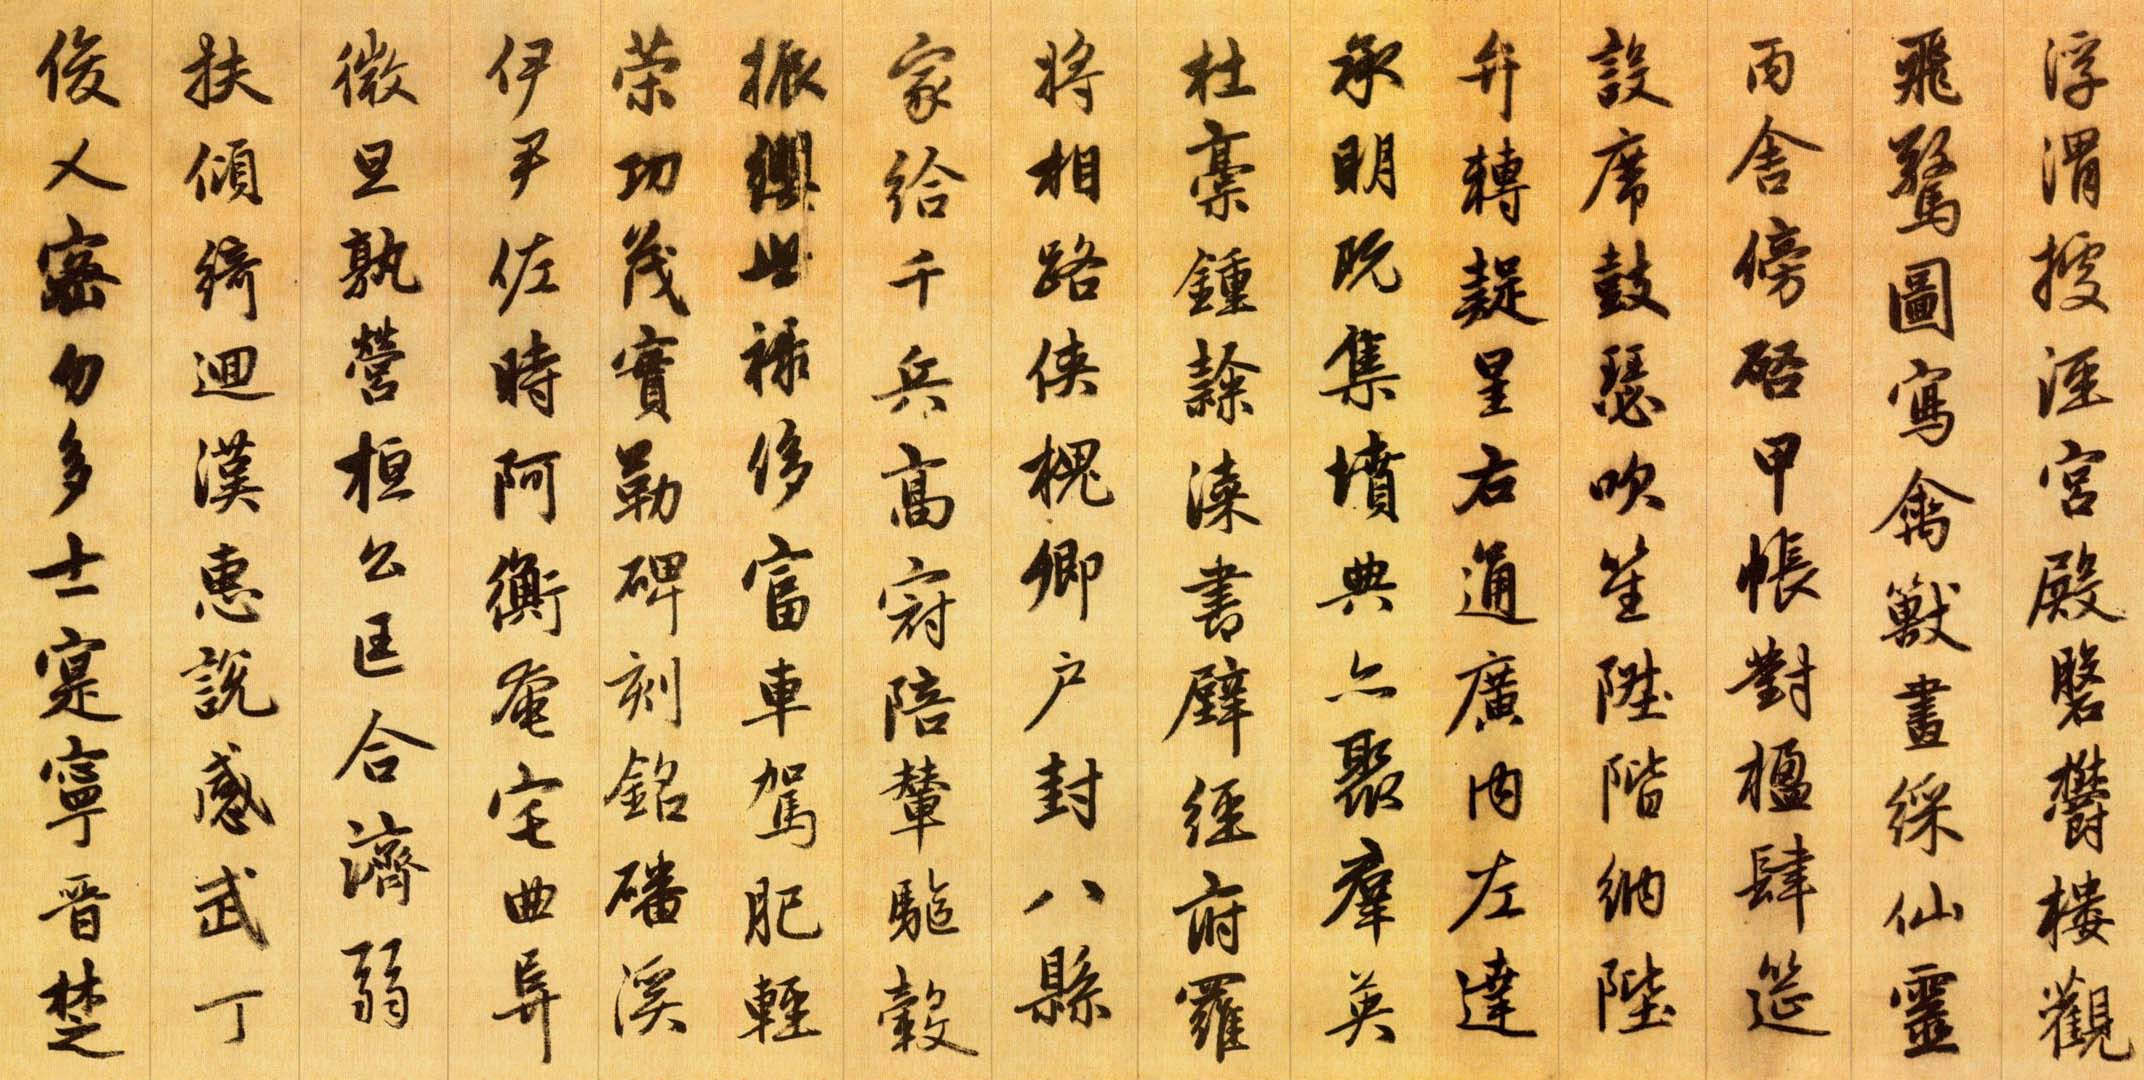 浮渭據涇宮殿磐欝樓觀
飛驚圖寫禽獸畫綵仙靈
丙舍傍啓甲帳對楹肆筵
設席鼓瑟吹笙陞階納陛
弁轉疑星右通廣內左達
承明既集墳典亦聚羣英
杜稾鍾隸漆書壁經府羅
將相路俠槐卿戶封八縣
家給千兵高冠陪輦驅轂
振纓世祿侈富車駕肥輕
策功茂實勒碑刻銘磻溪
伊尹佐時阿衡奄宅曲阜
微旦孰營桓公匡合濟弱
扶傾綺迴漢惠說感武丁
俊乂密勿多士寔寧晉楚